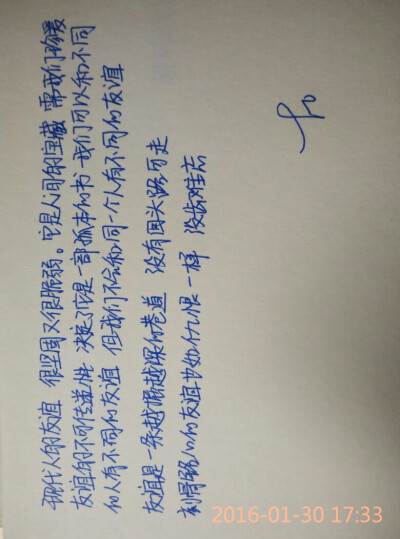 现代人的友谊 很坚固又很脆弱。它是人间的宝藏 需我们珍爱
友谊的不可传递性 决定了它是一部孤本的书 我们可以和不同
的人有不同的友谊 但我们不会和同一个人有不同的友谊
友谊是一条越掘越深的巷道 没有回头路可走
刻骨铭心的友谊也如仇恨一样 没齿难忘
2016-01-30 17:33